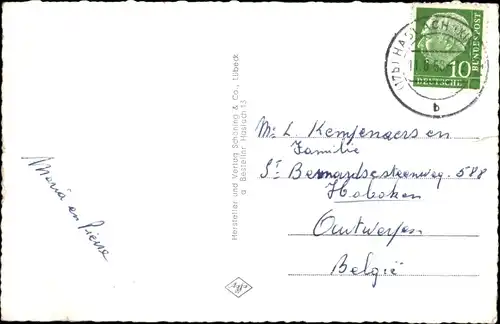 (17b) HASLACH
10
DEUTSCHE
BUNDESPOST
b
Mr L. Kempenaers en
Familie
St Bernardsesteenweg. 588
Hoboken
Antwerpen
België
Maria en Pierre
Hersteller und Verlag Schöning & Co., Lübeck
Bestellnr Haslach 13